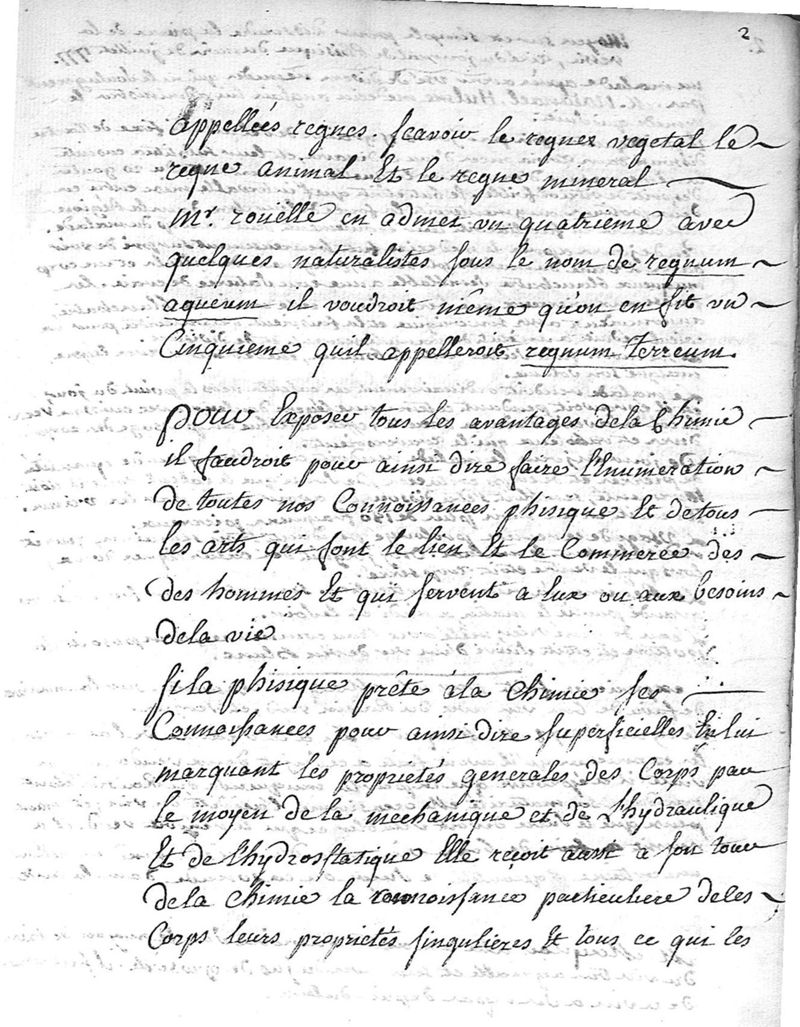 2
appellées regnes. scavoir le regnes vegetal le
regne animal Et le regne mineral
mr. rouëlle en admet un quatrieme avec
quelques naturalistes sous le nom de regnum
aqueum il voudroit même qu'on en fit un
Cinquieme quil appelleroit regnum terreum.
pour Exposer tous les avantages dela Chimie
il faudroit pour ainsi dire faire l'Enumeration
de toutes nos Connoissances phisique Et detous
les arts qui font le lien Et le Commerce des
des hommes Et qui servent a lux ou aux besoins
dela vie
si la phisique prête à la Chimie ses
Connoissances pour ainsi dire superficielles En lui
marquant les proprietés generales des Corps par
le moyen de la mechanique et de L'hydraulique
Et de l'hydrosstatique Elle reçoit aussi a son tour
dela Chimie la connoissance particuliere deles
Corps leurs proprietés singulieres Et tous ce qui les